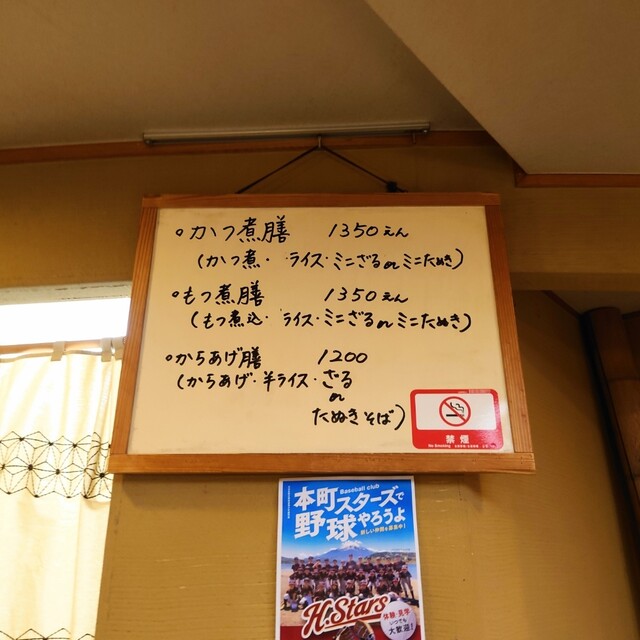 。かつ煮膳 1350えん
(かつ煮・ライス・ミニざる or ミニたぬき)
。もつ煮膳 1350えん
(もつ煮込・ライス・ミニざる or ミニたぬき)
。からあげ膳 1200
(からあげ・半ライス・ざる
or
たぬきそば)
禁煙
No Smoking
Baseball club
本町スターズで
野球やろうよ
新しい仲間を募集中!
H.Stars
体験・見学
いつでも
大歓迎!